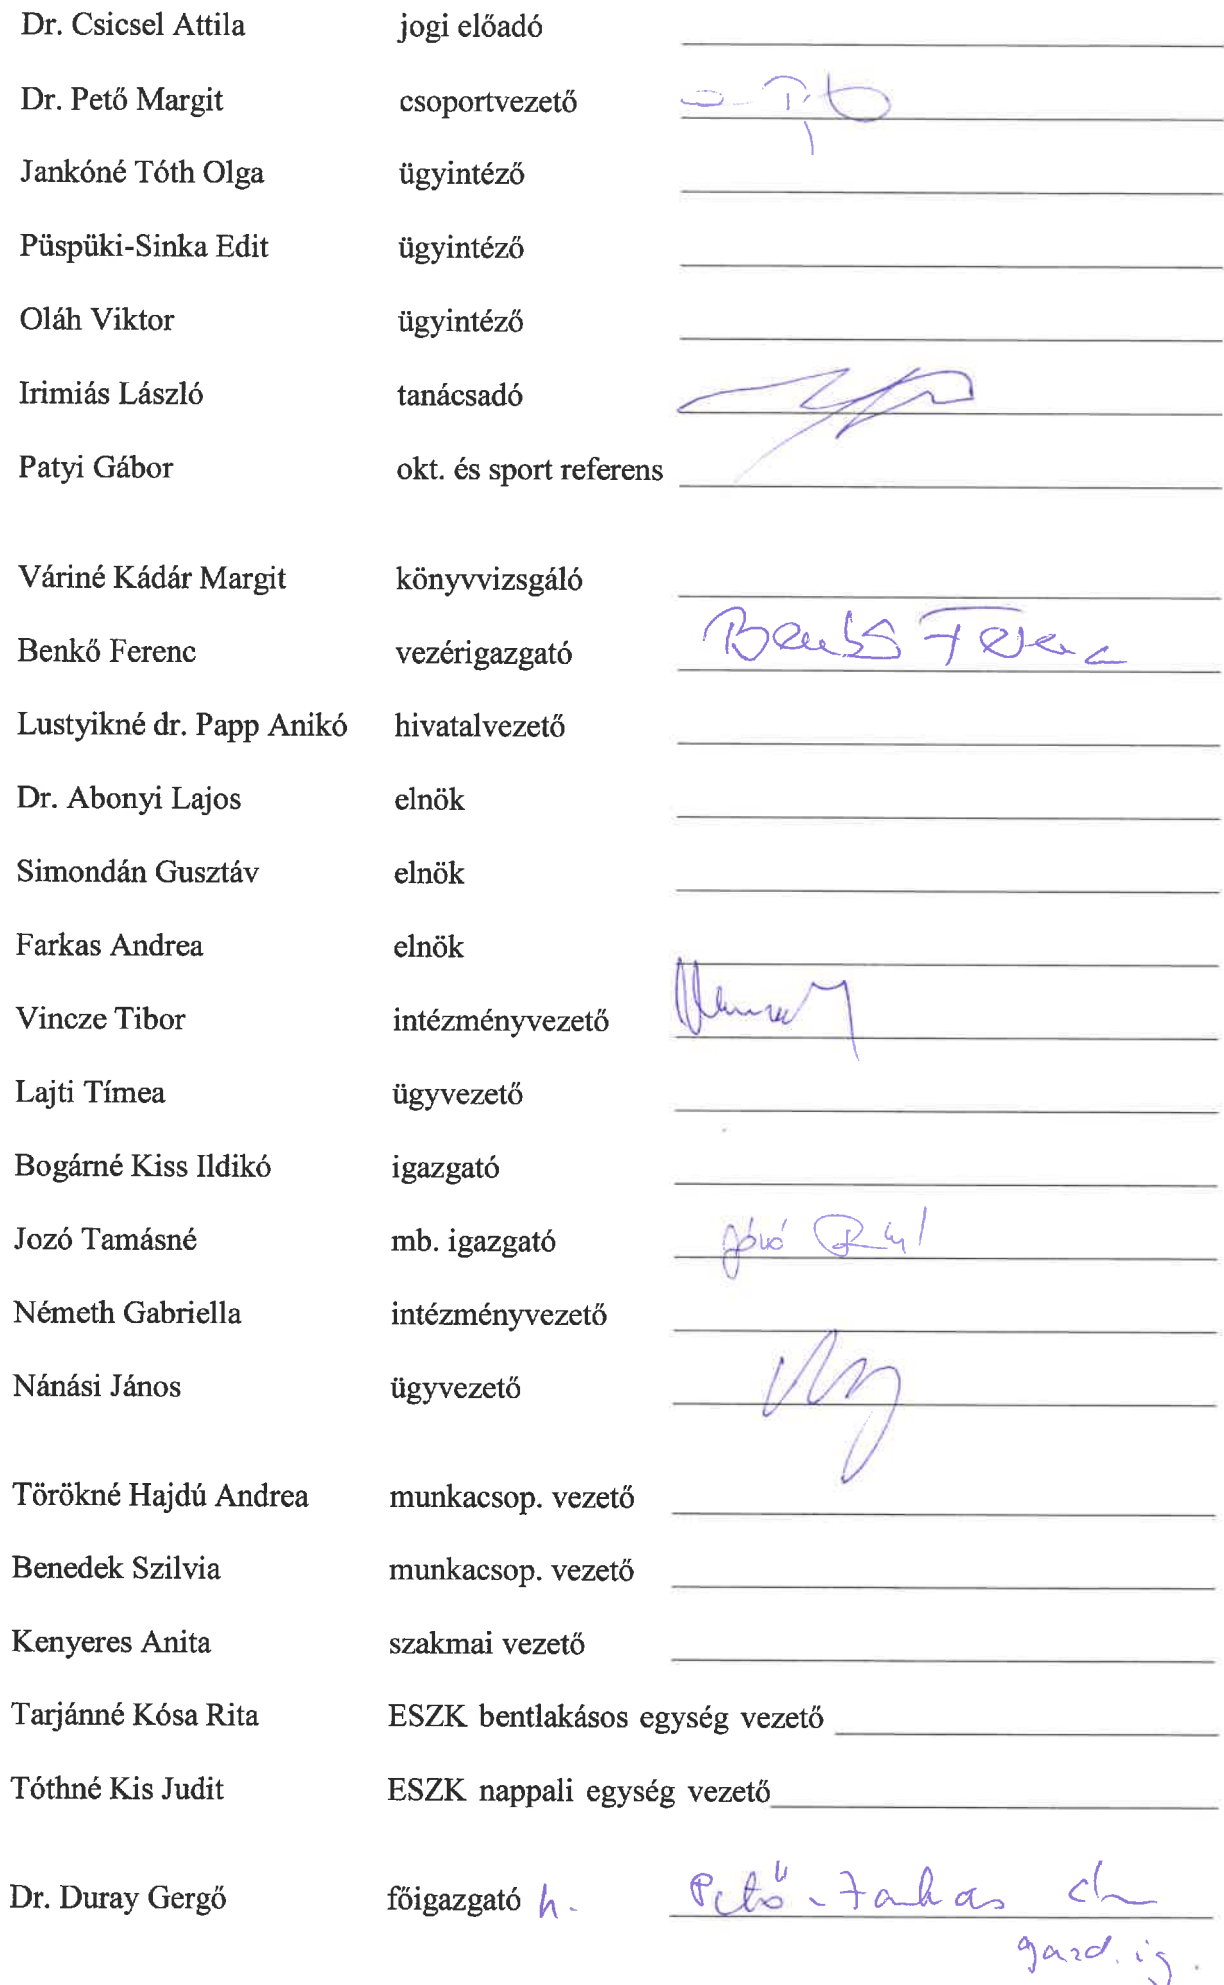 Dr. Csicsel Attila jogi előadó
Dr. Pető Margit csoportvezető
Jankóné Tóth Olga ügyintéző
Püspüki-Sinka Edit ügyintéző
Oláh Viktor ügyintéző
Irimiás László tanácsadó
Patyi Gábor okt. és sport referens
Váriné Kádár Margit könyvvizsgáló
Benkő Ferenc vezérigazgató Benkő Ferenc
Lustyikné dr. Papp Anikó hivatalvezető
Dr. Abonyi Lajos elnök
Simondán Gusztáv elnök
Farkas Andrea elnök
Vincze Tibor intézményvezető
Lajti Tímea ügyvezető
Bogárné Kiss Ildikó igazgató
Jozó Tamásné mb. igazgató
Németh Gabriella intézményvezető
Nánási János ügyvezető
Törökné Hajdú Andrea munkacsop. vezető
Benedek Szilvia munkacsop. vezető
Kenyeres Anita szakmai vezető
Tarjánné Kósa Rita ESZK bentlakásos egység vezető
Tóthné Kis Judit ESZK nappali egység vezető
Dr. Duray Gergő főigazgató h. Pető-Takas
gazd. ig.